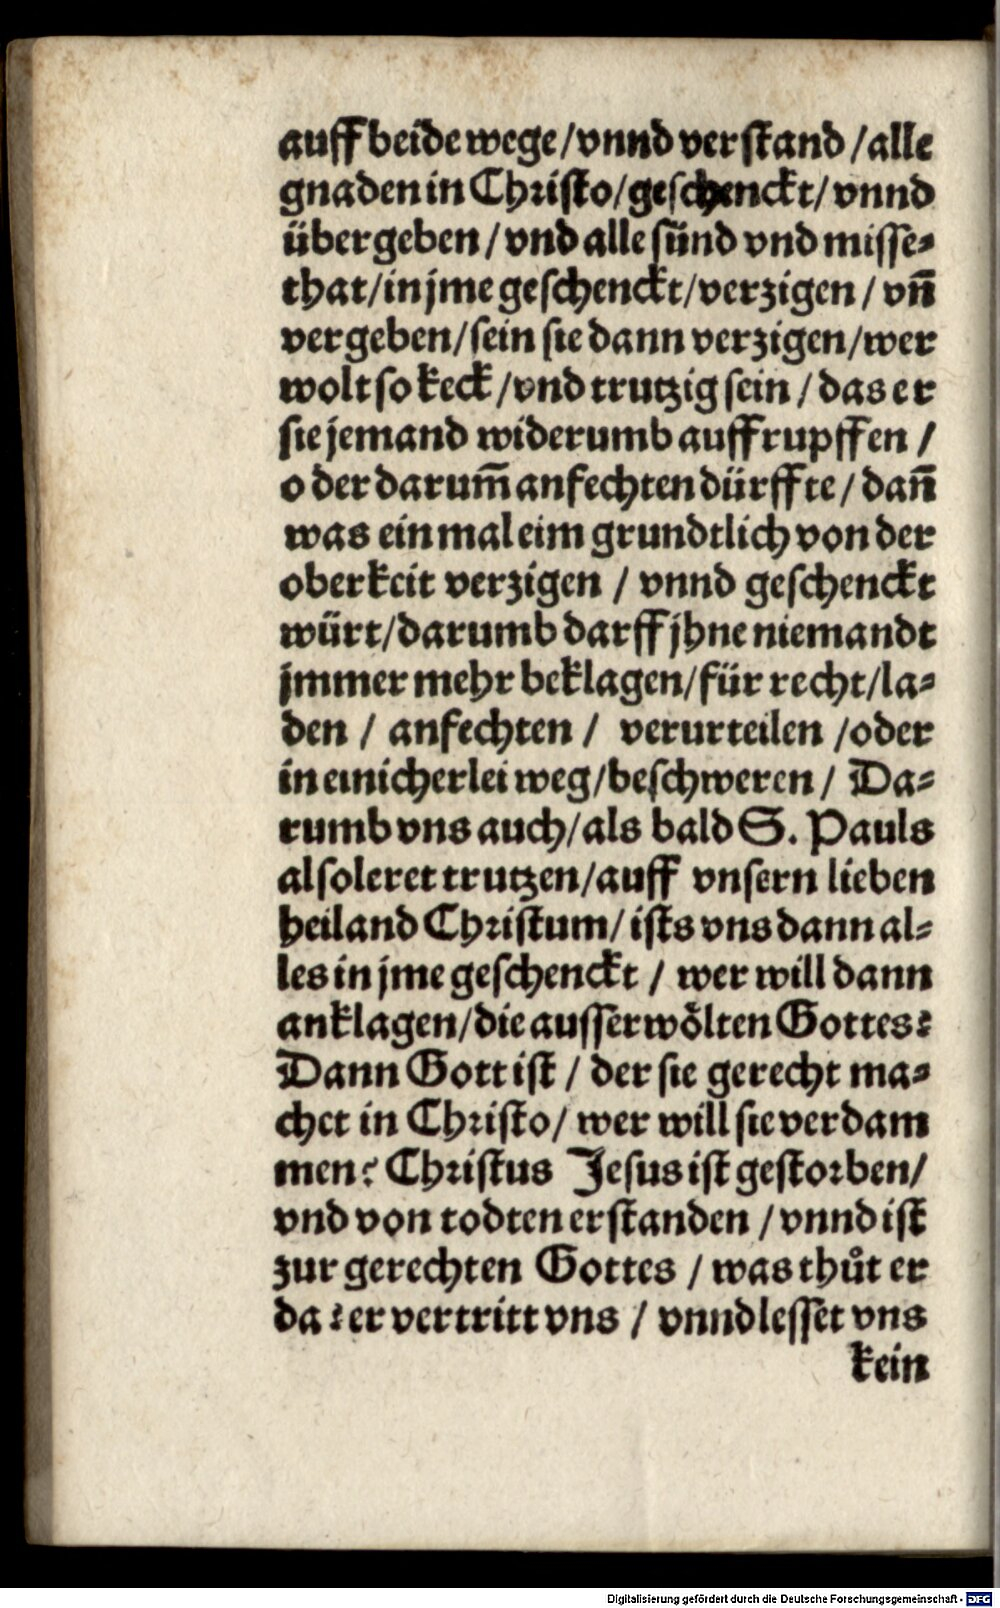 auff beide wege / vnnd verstand / alle
gnaden in Christo / geschenckt / vnnd
übergeben / vnd alle sünd vnd misse⸗
that / in jme geschenckt / verzigen / vñ
vergeben / sein sie dann verzigen / wer
wolt so keck / vnd trutzig sein / das er
sie jemand widerumb auffrupffen /
oder darum̃ anfechten dürffte / dañ
was ein mal eim grundtlich von der
oberkeit verzigen / vnnd geschenckt
würt / darumb darff jhne niemandt
jmmer mehr beklagen / für recht / la⸗
den / anfechten / verurteilen / oder
in einicherlei weg / beschweren / Da⸗
rumb vns auch / als bald S. Pauls
also leret trutzen / auff vnsern lieben
heiland Christum / ists vns dann al⸗
les in jme geschenckt / wer will dann
anklagen / die ausserwoͤlten Gottes?
Dann Gott ist / der sie gerecht ma⸗
chet in Christo / wer will sie verdam
men? Christus Jesus ist gestorben /
vnd von todten erstanden / vnnd ist
zur gerechten Gottes / was thůt er
da? er vertritt vns / vnnd lesset vns
kein
Digitalisierung gefördert durch die Deutsche Forschungsgemeinschaft - DFG